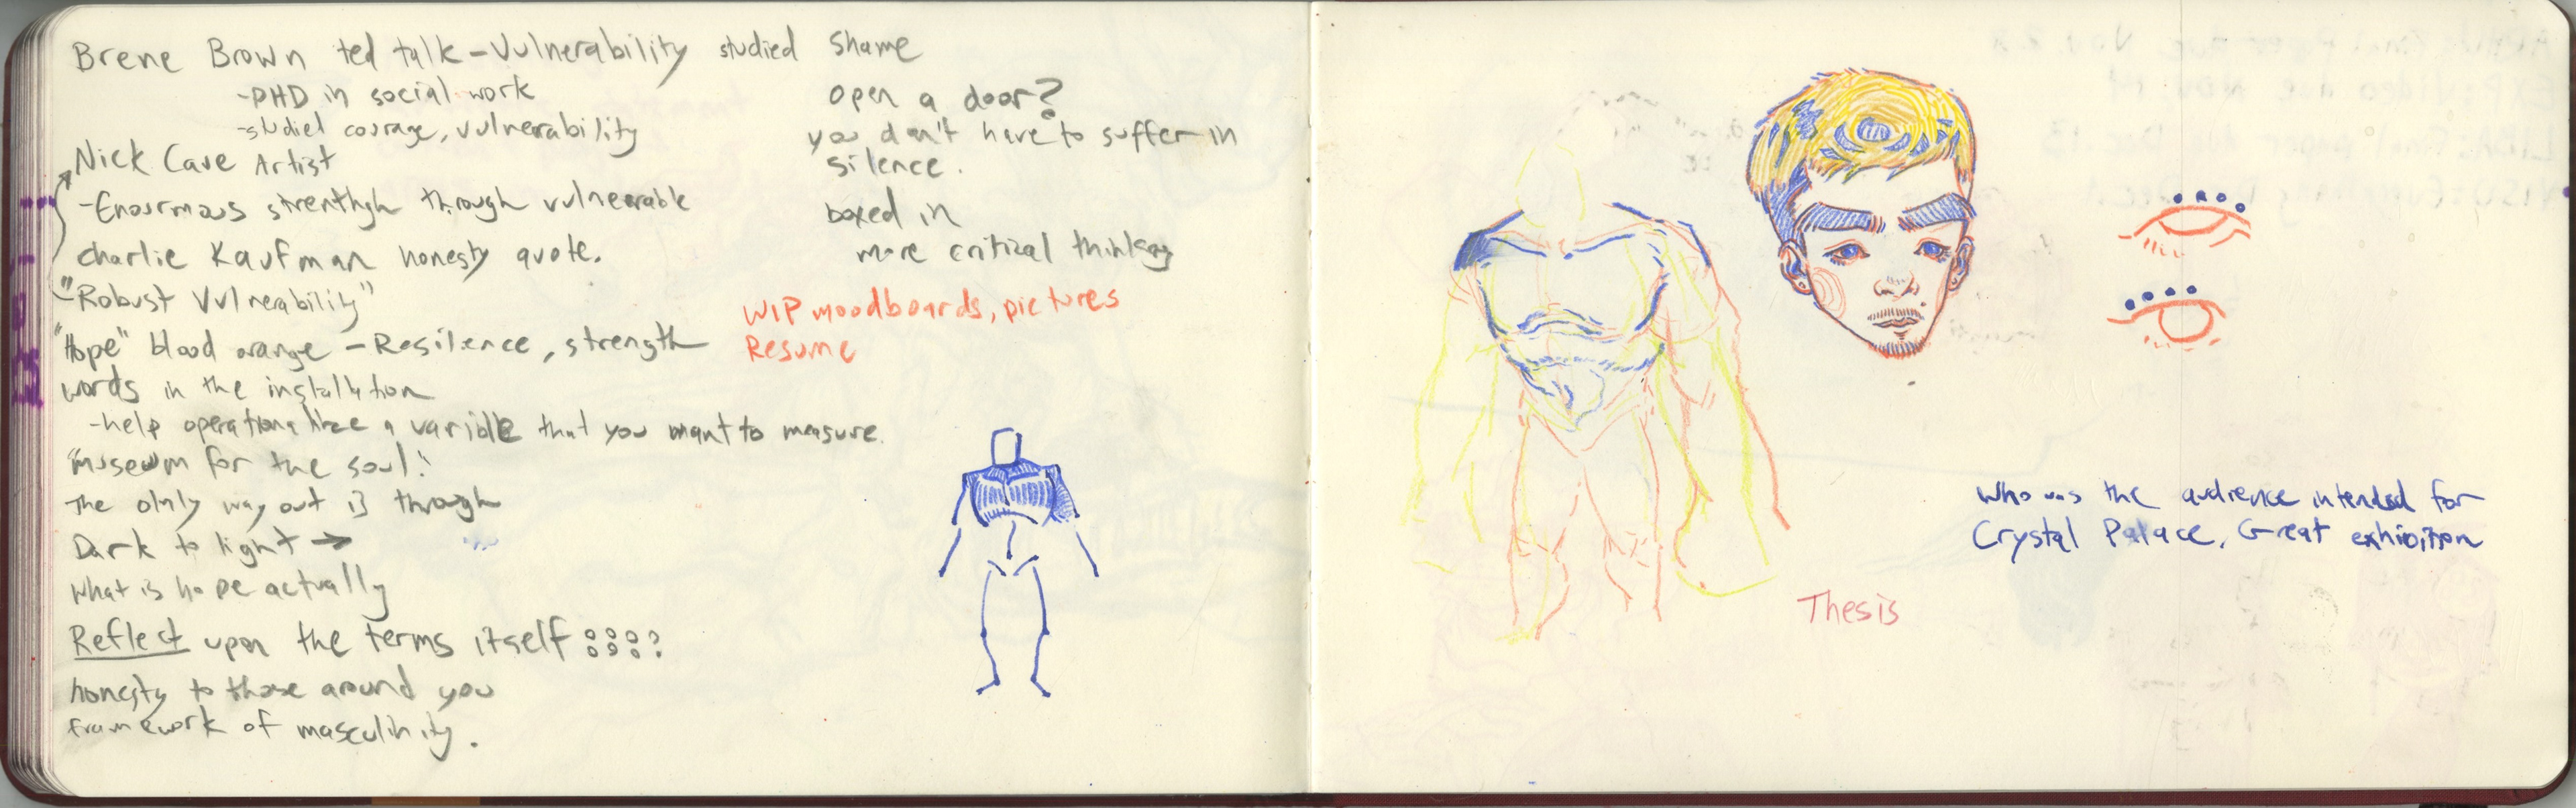 Brene Brown ted talk - Vulnerability studied shame
-PHD in social work
-studied courage, vulnerability
Nick Cave Artist
-Enourmous strenthgh through vulnearable
charlie Kaufman honesty quote.
"Robust Vulnerability"
"Hope" blood orange - Resilence, strength
words in the installation
-help operationalize a varible that you want to measure.
"museum for the soul."
The olnly way out is through
Dark to light →
what is hope actually
Reflect upon the terms itself
honesty to those around you
framework of masculinity.
open a door?
you don't have to suffer in
silence.
boxed in
more critical thinking
WIP moodboards, pictures
Resume
Thesis
Who was the audience intended for
Crystal Palace, Great exhibition